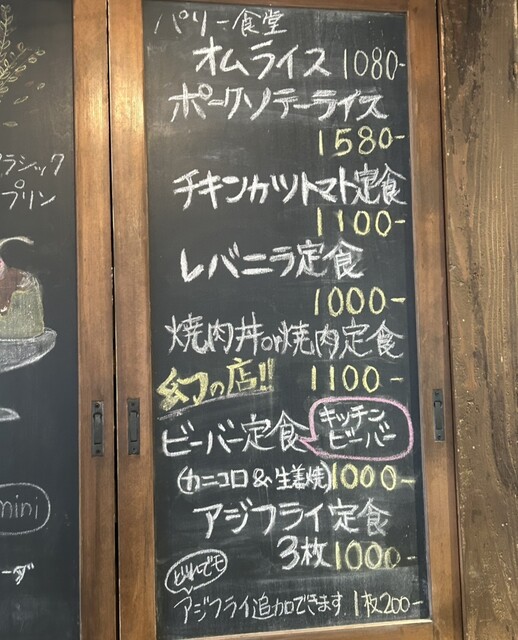 パリー食堂
オムライス 1080-
ポークソテーライス
1580-
チキンカツトマト定食
1100-
レバニラ定食
1000-
焼肉丼or焼肉定食
幻の店!! 1100-
ビーバー定食
キッチン
ビーバー
(カニコロ&生姜焼) 1000-
アジフライ定食
3枚 1000-
どれでも
アジフライ追加できます 1枚200-
ラシック
プリン
mini
ーダ